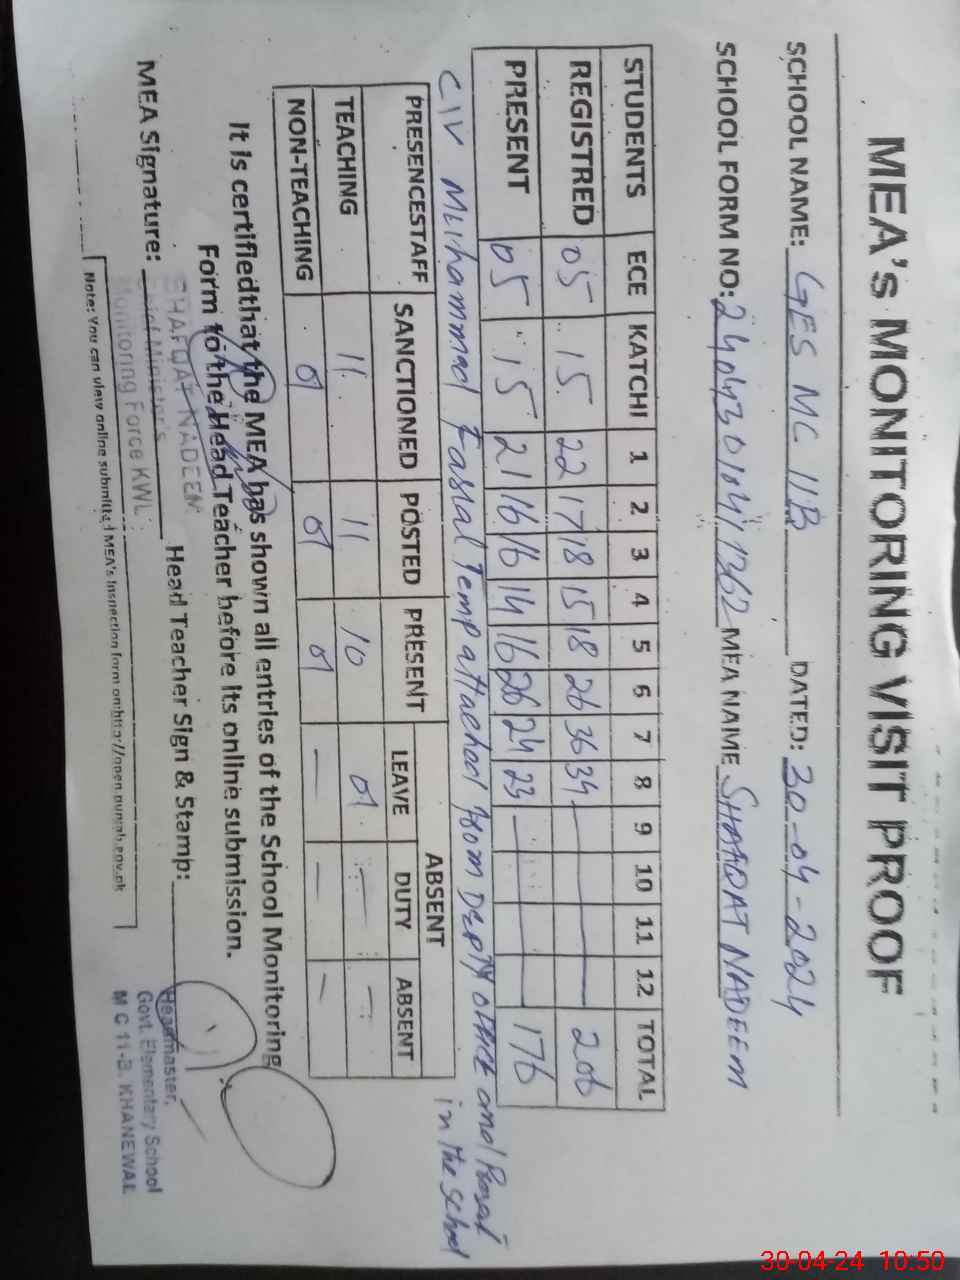 MEA's MONITORING VISIT PROOF
SCHOOL NAME: GES MC 11B DATED: 30-04-2024
SCHOOL FORM NO: MEA NAME SHAFQAT NADEEM
STUDENTS ECE KATCHI 1 2 3 4 5 6 7 8 9 10 11 12 TOTAL
REGISTRED 05 15 22 17 18 15 18 26 36 34 — 206
PRESENT 05 15 21 16 16 14 16 26 24 23 — 176
CIV Muhammad Faisal Temp attached from DEPTY office and Present
in the school
PRESENCESTAFF SANCTIONED POSTED PRESENT ABSENT
LEAVE DUTY ABSENT
TEACHING 11 11 10 01 — —
NON-TEACHING 01 01 01 — — —
It is certifiedthat the MEA has shown all entries of the School Monitoring
Form to the Head Teacher before its online submission.
SHAFQAT NADEEM
Chief Minister's
Monitoring Force KWL
MEA Signature: Head Teacher Sign & Stamp:
Headmaster,
Govt. Elementary School
M C 11-B. KHANEWAL
Note: You can view online submitted MEA's Inspection form on:http://open.punjab.gov.pk
30-04-24 10:50